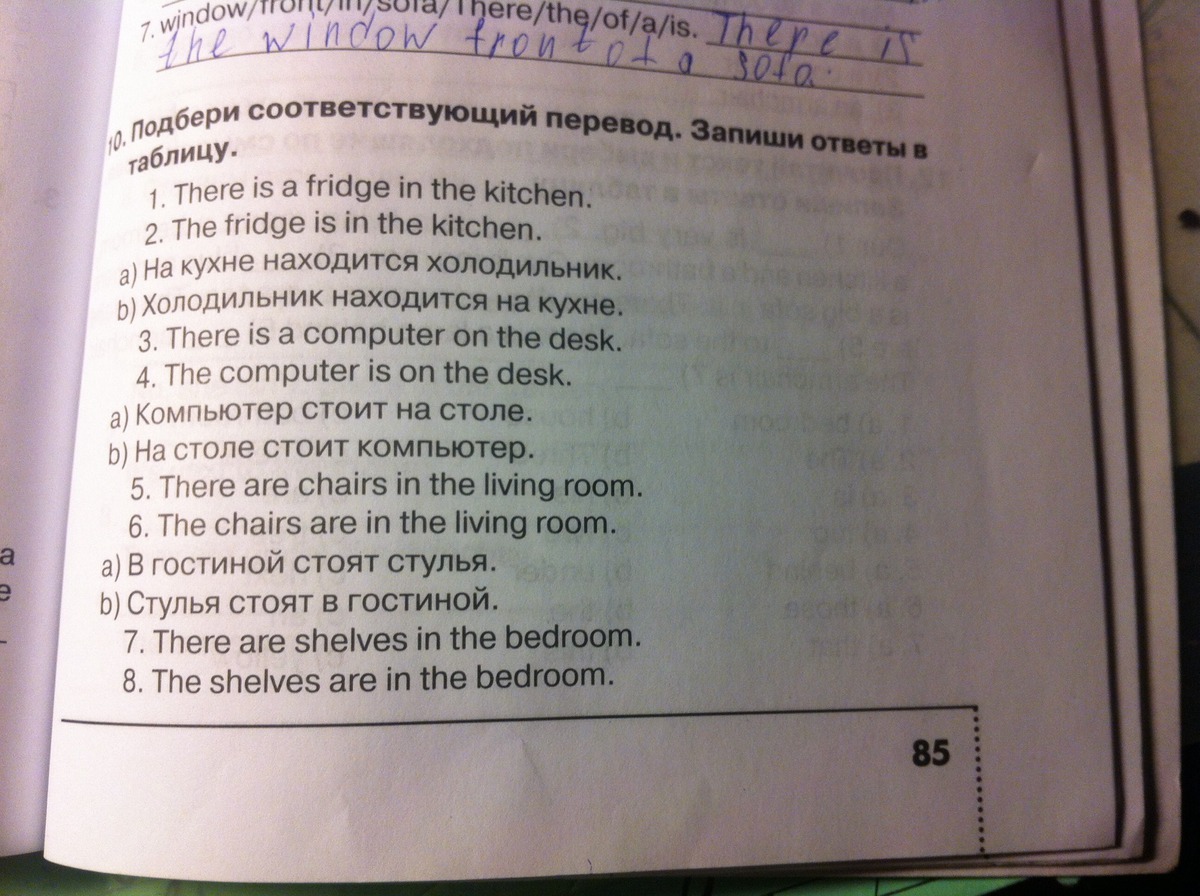 7. window/front/in/sofa/There/the/of/a/is. There is
the window front of a sofa.
10. Подбери соответствующий перевод. Запиши ответы в
таблицу.
1. There is a fridge in the kitchen.
2. The fridge is in the kitchen.
a) На кухне находится холодильник.
b) Холодильник находится на кухне.
3. There is a computer on the desk.
4. The computer is on the desk.
a) Компьютер стоит на столе.
b) На столе стоит компьютер.
5. There are chairs in the living room.
6. The chairs are in the living room.
a) В гостиной стоят стулья.
b) Стулья стоят в гостиной.
7. There are shelves in the bedroom.
8. The shelves are in the bedroom.
85